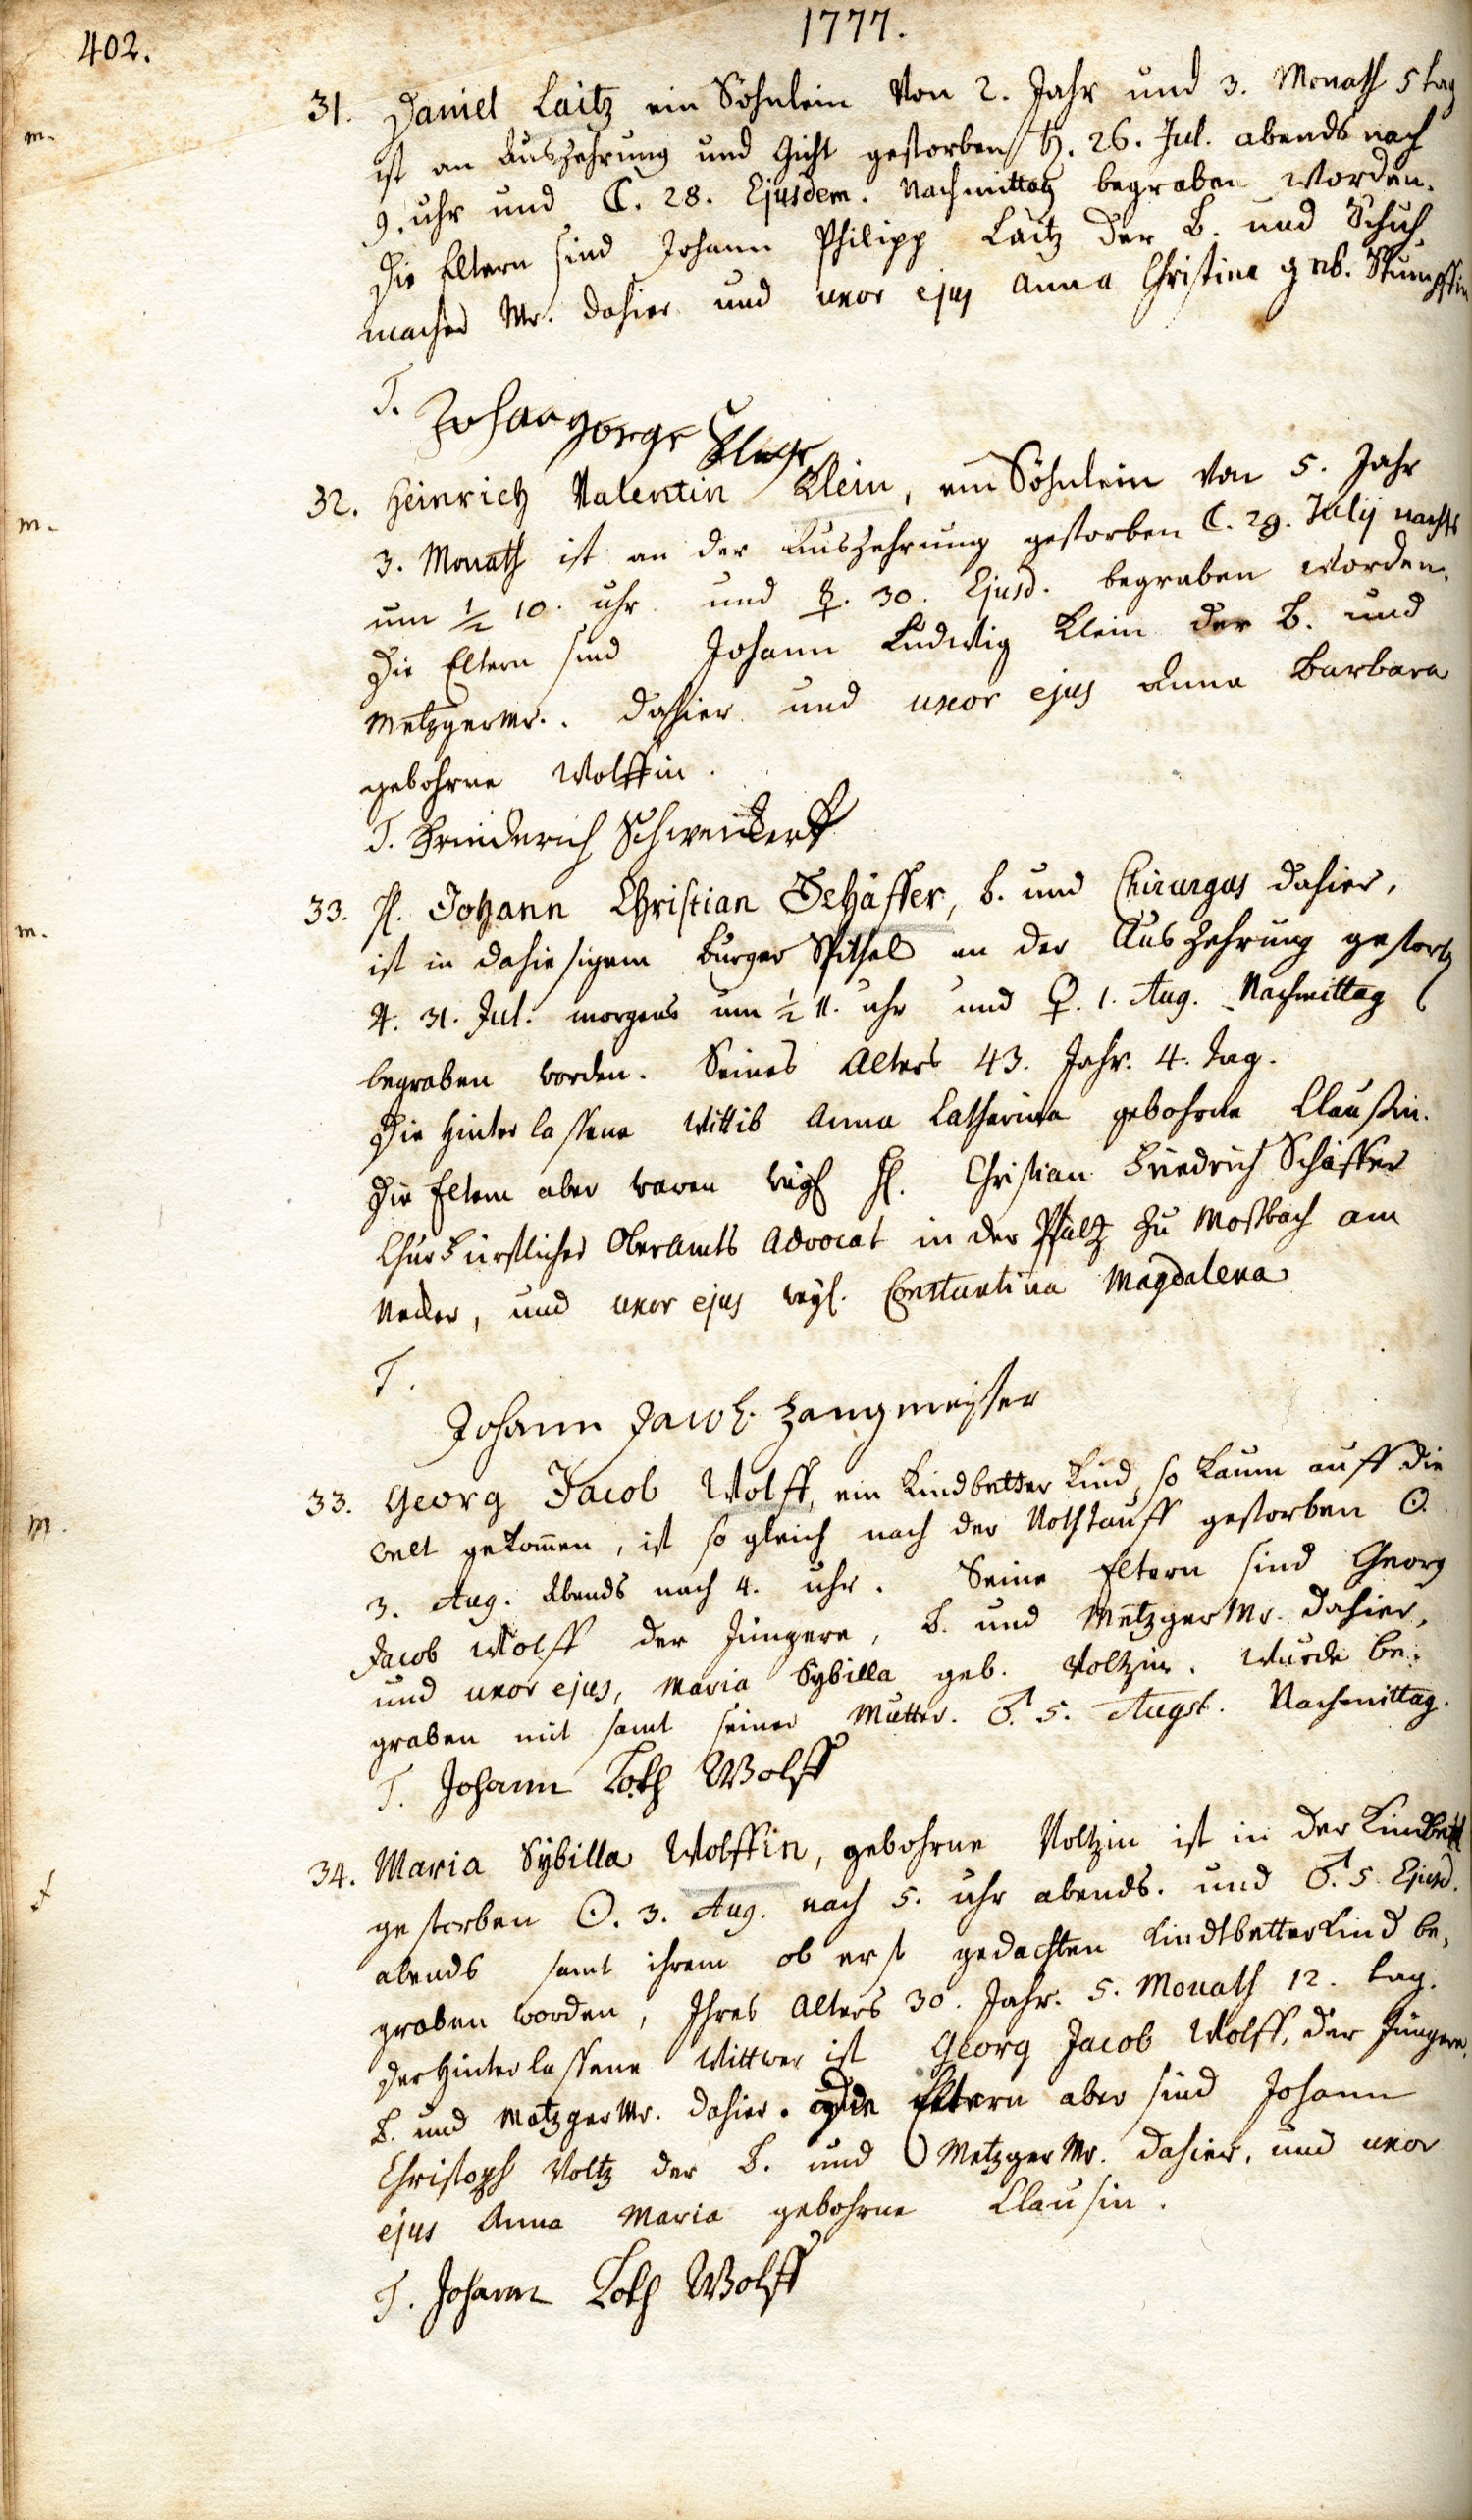 402.
1777.
m.
31. Daniel Laitz ein Söhnlein von 2. Jahr und 3. Monath 5 tag
ist an Auszehrung und Gicht gestorben ♄. 26. Jul. abends nach
9. uhr und ☾. 28. Ejusdem. Nachmittag begraben worden.
Die Eltern sind Johann Philipp Laitz der B. und Schuh
macher Mr. dahier und uxor ejus Anna Christina geb. Stumpffin
T. Johan gorge
m.
32. Heinrich Valentin Klein, ein Söhnlein von 5. Jahr
3. Monath ist an der Auszehrung gestorben ☾. 29. Julij nachts
um ½ 10. uhr und ☿. 30. Ejusd. begraben worden.
Die Eltern sind Johann Ludwig Klein der B. und
Metzgermr. dahier und uxor ejus Anna Barbara
gebohrne Wolffin.
T. Frinderich Schweickert
m.
33. H. Johann Christian Schäffer, B. und Chirurgus dahier,
ist in dahiesigem Burger Spithal an der Auszehrung gestorb
♃. 31. Jul. morgens um ½ 11. uhr und ♀. 1. Aug. Nachmittag
begraben worden. Seines Alters 43. Jahr. 4. Tag.
Die Hinterlassene Wittib Anna Catharina gebohrne Claußin.
Die Eltern aber waren weyl H. Christian Friedrich Schäffer
Churfürstlicher Oberamts Advocat in der Pfaltz zu Moßbach am
Necker, und uxor ejus weyl. Constantina Magdalena
T.
Johann Jacob Zangmeister
m.
33. Georg Jacob Wolff, ein Kindbetter Kind, so kaum auff die
welt gekom̄en, ist so gleich nach der Nothtauff gestorben ☉.
3. Aug. Abends nach 4. uhr. Seine Eltern sind Georg
Jacob Wolff der Jüngere, B. und Metzger Mr. dahier,
und uxor ejus, Maria Sybilla geb. Voltzin. Wurde be-
graben mit samt seiner Mutter. ♂. 5. Augst. Nachmittag.
T. Johann Loth Wolff
f
34. Maria Sybilla Wolffin, gebohrne Voltzin ist in der Kindbett
gestorben ☉. 3. Aug. nach 5. uhr abends. und ♂. 5. Ejusd.
abends samt ihrem ob erst gedachten Kindtbetterkind be,
graben worden, Ihres Alters 30. Jahr. 5. Monath 12. tag.
Der Hinterlassene Wittwer ist Georg Jacob Wolff, der Jüngere.
B. und Metzger Mr. dahier. Eltern aber sind Johann
Christoph Voltz der B. und Metzger Mr. dahier, und uxor
ejus Anna Maria gebohrne Clausin.
T. Johann Loth Wolff